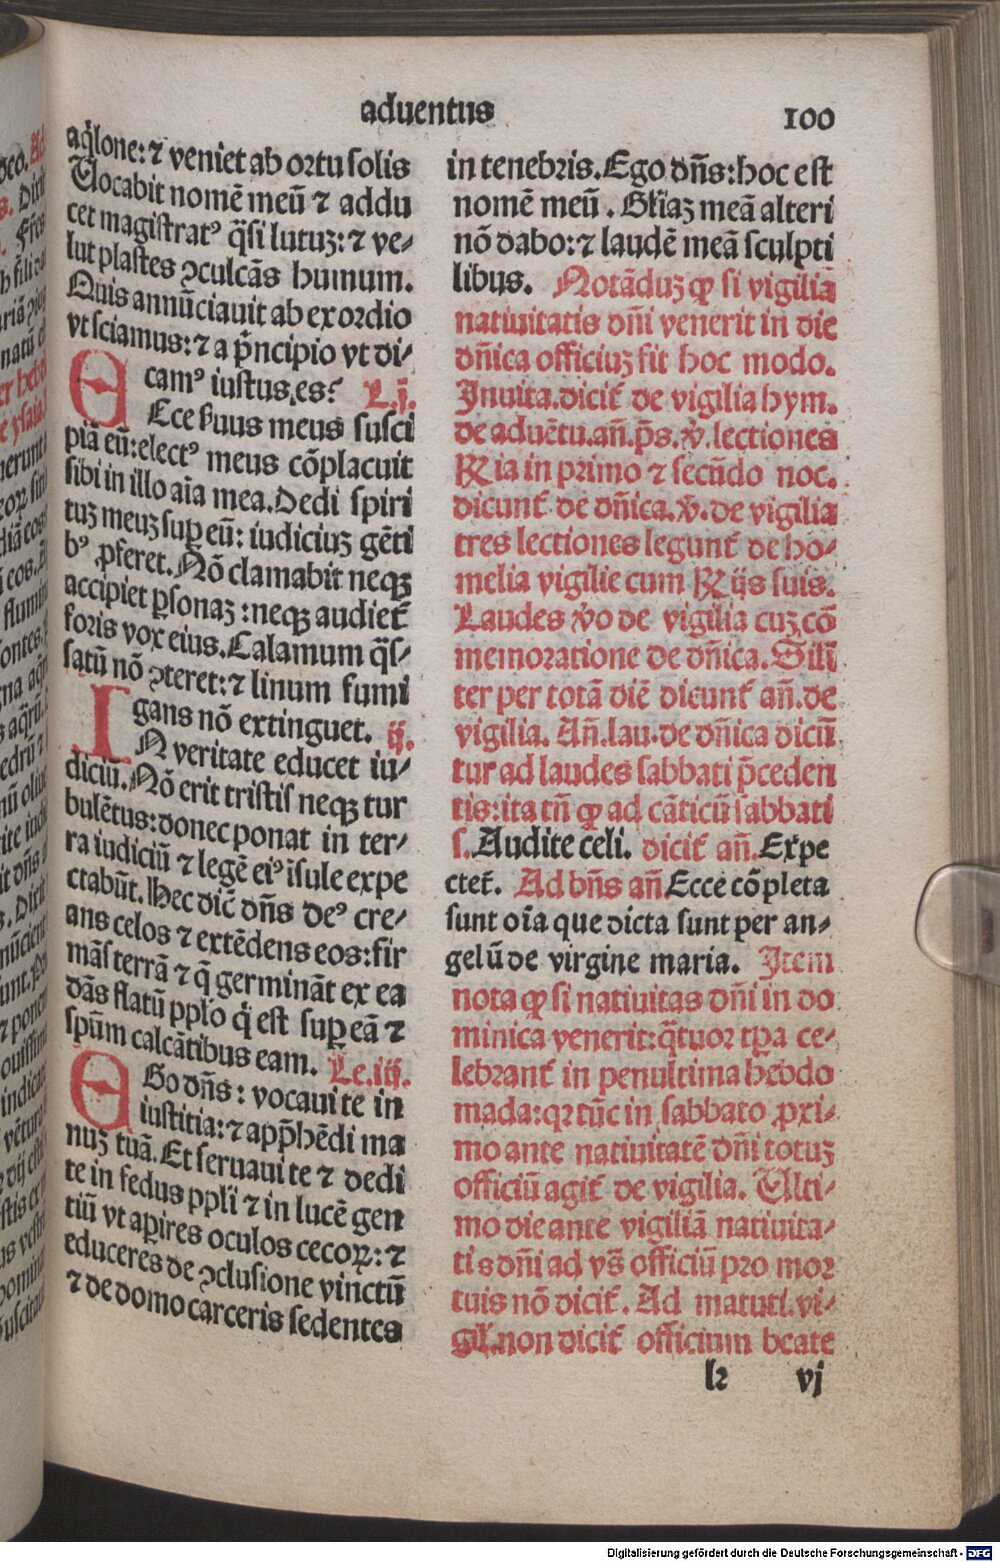 aduentus 100
aq̃lone: ⁊ veniet ab ortu solis
Uocabit nomē meū ⁊ addu
cet magistratꝰ q̃si lutuꝫ: ⁊ ve-
lut plastes ꝯculcãs humum.
Quis annūciauit ab exordio
vt sciamus: ⁊ a p̃ncipio vt di-
camꝰ iustus es? L.ij.
Ecce ẜuus meus susci
piā eū: electꝰ meus cõplacuit
sibi in illo aĩa mea. Dedi spiri
tuꝫ meuꝫ suꝑ eū: iudiciuꝫ gẽti
bꝰ ꝓferet. Nõ clamabit neqꝫ
accipiet ꝑsonaꝫ: neqꝫ audiet̃
foris vox eius. Calamum q̃s-
satū nõ ꝯteret: ⁊ linum fumi
gans nõ extinguet. iij.
IN veritate educet iu-
diciū. Nõ erit tristis neqꝫ tur
bulētus: donec ponat in ter-
ra iudiciū ⁊ legē eiꝰ ĩsule expe
ctabūt. Hec dic̃ dñs deꝰ cre-
ans celos ⁊ extēdens eos: fir
mãs terrã ⁊ q̃ germinãt ex ea
dãs flatũ pplo q̃ est suꝑ eã ⁊
spũm calcãtibus eam. Le.iiij.
EGo dñs: vocaui te in
iustitia: ⁊ app̃hēdi ma
nuꝫ tuã. Et seruaui te ⁊ dedi
te in fedus ppli ⁊ in lucē gen
tiũ vt aꝑires oculos cecoꝝ: ⁊
educeres de ꝯclusione vinctũ
⁊ de domo carceris sedentes
in tenebris. Ego dñs: hoc est
nomē meũ. Gl̃iaꝫ meã alteri
nõ dabo: ⁊ laudē meã sculpti
libus. Notãduꝫ ꝙ si vigiliã
natiuitatis dñi venerit in die
dñica officiuꝫ fit hoc modo.
Inuita. dicit̃ de vigilia hym.
de aduētu. añ. p̃s. ℣. lectiones
℞ia in primo ⁊ secũdo noc.
dicunt̃ de dñica. ℣. de vigilia
tres lectiones legunt̃ de ho-
melia vigilie cum ℞ijs suis.
Laudes ℣o de vigilia cuꝫ cõ
memoratione de dñica. Sil̃i
ter per totã diē dicunt̃ añ. de
vigilia. Añ. lau. de dñica dicũ
tur ad laudes sabbati p̃ceden
tis: ita tñ ꝙ ad cãticũ sabbati
s. Audite celi. dicit̃ añ. Expe
ctet̃. Ad bñs añ Ecce cõpleta
sunt oĩa que dicta sunt per an-
gelũ de virgine maria. Item
nota ꝙ si natiuitas dñi in do
minica venerit: q̃tuor tp̃a ce-
lebrant̃ in penultima hebdo
mada: qꝛ tũc in sabbato ꝓxi-
mo ante natiuitatē dñi totuꝫ
officiũ agit̃ de vigilia. Ulti-
mo die ante vigiliã natiuita-
tis dñi ad vs̃ officiũ pro mor
tuis nõ dicit̃. Ad matuti. vi-
gil. non dicit̃ officium beate
vj